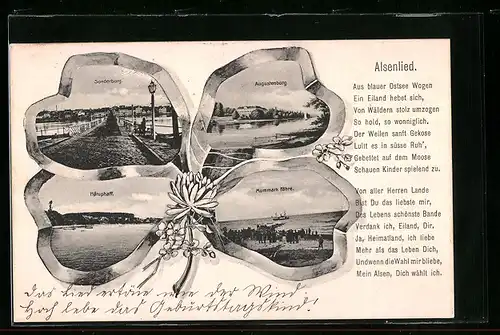 Sonderburg.
Augustenburg.
Höruphaff.
Mummark fähre.
Alsenlied.
Aus blauer Ostsee Wogen
Ein Eiland hebet sich,
Von Wäldern stolz umzogen
So hold, so wonniglich.
Der Wellen sanft Gekose
Lullt es in süsse Ruh',
Gebettet auf dem Moose
Schauen Kinder spielend zu.
Von aller Herren Lande
Bist Du das liebste mir,
Des Lebens schönste Bande
Verdank ich, Eiland, Dir.
Ja, Heimatland, ich liebe
Mehr als das Leben Dich,
Und wenn die Wahl mir bliebe,
Mein Alsen, Dich wählt ich.
Das Lied ertöne wie der Wind.
Hoch lebe das Geburtstagskind!